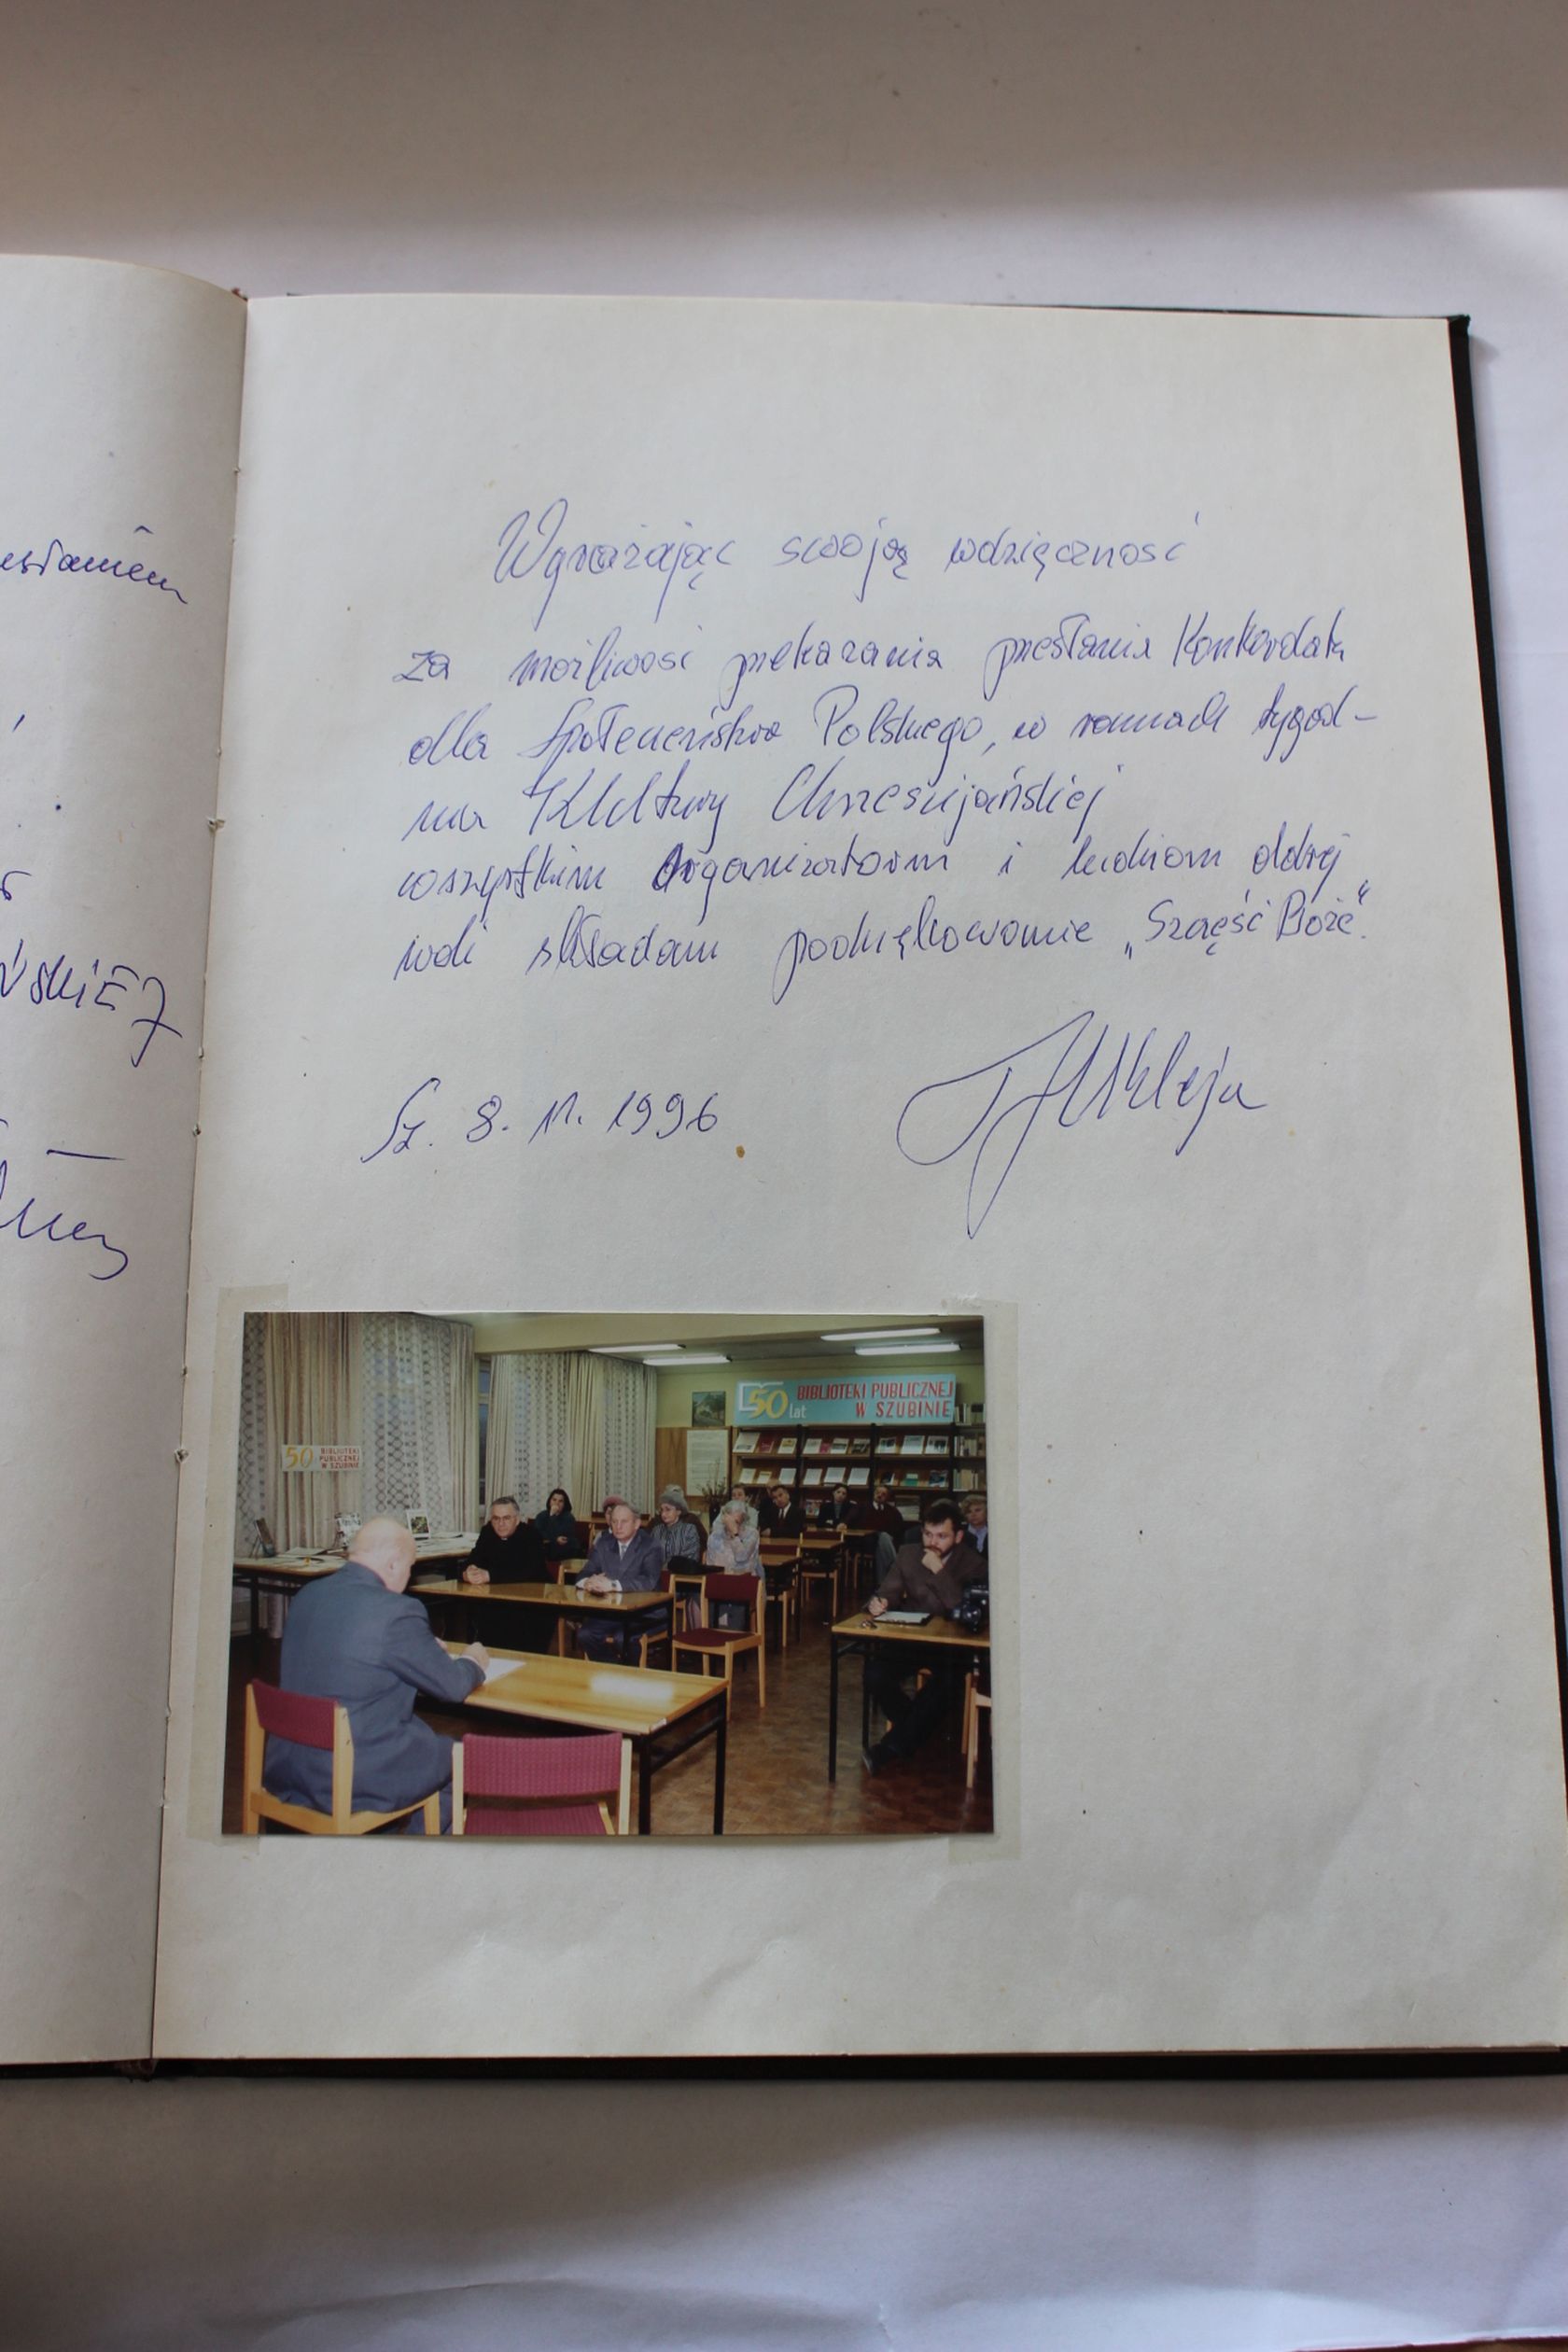 Wyrażając swoją wdzięczność
za możliwość przekazania przesłania Konkordatu
dla Społeczeństwa Polskiego, w ramach tygod-
nia Kultury Chrześcijańskiej
wszystkim organizatorom i ludziom dobrej
woli składam podziękowanie „Szczęść Boże".
Sz. 8. 11. 1996
ŃSKIEJ
50 lat BIBLIOTEKI PUBLICZNEJ
W SZUBINIE
50 BIBLIOTEKI
PUBLICZNEJ
W SZUBINIE